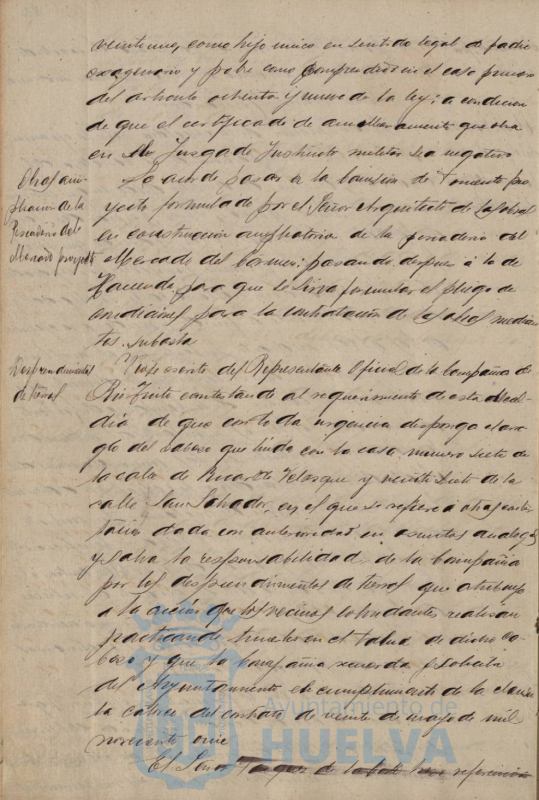 veintiuno, como hijo unico en sentido legal de padre
sexagenario y pobre como comprendido en el caso primero
del articulo ochenta y nueve de la ley: a condicion
de que el certificado de amillaramiento que obra
en el Juzgado Instructor militar sea negativo
Obras am-
pliacion de la
Pescaderia del
Mercado proyecto
Se acuerda pasar a la Comision de Fomento pro
yecto formulado por el Señor Arquitecto de las obras
en construccion ampliatoria de la pescaderia del
Mercado del Carmen: pasando despues á la de
Hacienda para que se sirva formular el pliego de
condiciones para la contratacion de las obras median
te subasta
Desprendimientos
de tierras
Visto escrito del Representante Oficial de la Compañia de
Rio-Tinto contestando al requerimiento de esta Alcal-
dia de que con toda urgencia disponga el arre
glo del cabezo que linda con la casa numero siete de
la calle de Ricardo Velazquez y veintisiete de la
calle San Salvador, en el que se refiere á otra contes
tacion dada con anterioridad en asuntos analogos
y salva la responsabilidad de la Compañia
por los desprendimientos de tierras que atribuye
a la accion que los vecinos colindantes realizan
practicando en el talud de dicho ca-
bezo y que la Compañia recuerda y solicita
del Ayuntamiento el cumplimiento de la clausu
la catorce del contrato de veinte de mayo de mil
novecientos once
El Señor Vazquez de la referencia
Ayuntamiento de
HUELVA